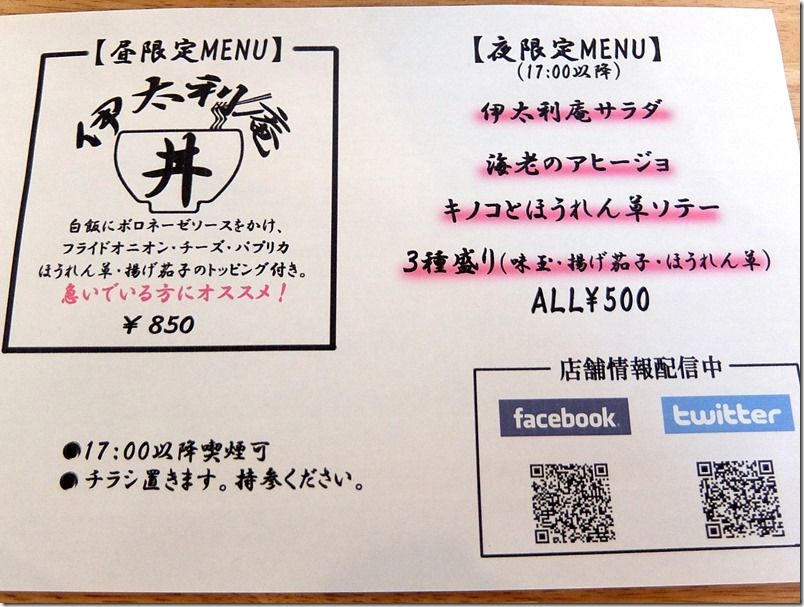 【昼限定MENU】
伊太利庵
丼
白飯にボロネーゼソースをかけ、
フライドオニオン・チーズ・パプリカ
ほうれん草・揚げ茄子のトッピング付き。
急いでいる方にオススメ!
¥850
●17:00以降喫煙可
●チラシ置きます。持参ください。
【夜限定MENU】
(17:00以降)
伊太利庵サラダ
海老のアヒージョ
キノコとほうれん草ソテー
3種盛り(味玉・揚げ茄子・ほうれん草)
ALL¥500
店舗情報配信中
facebook
twitter